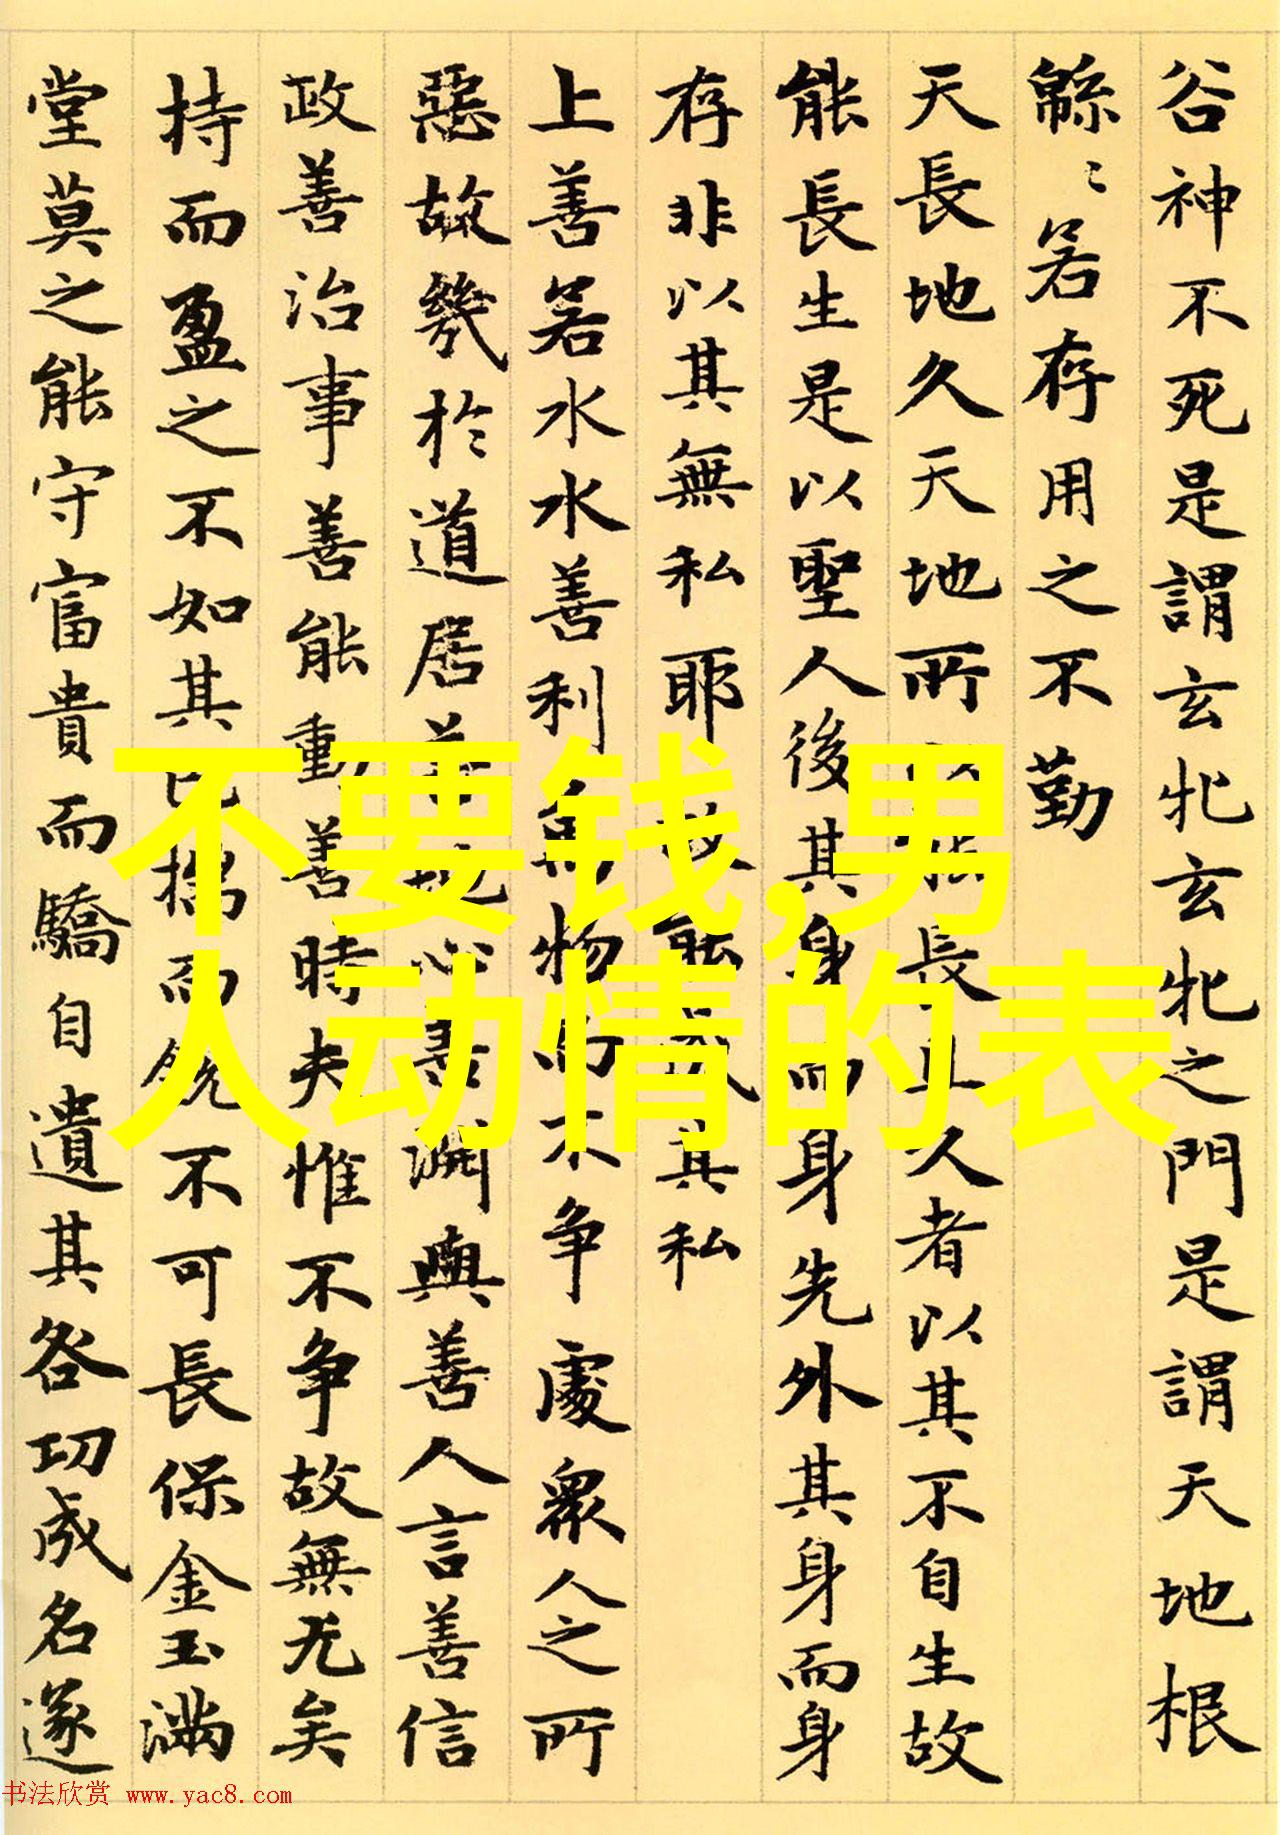 谷神不死是謂玄牝玄牝之門是謂天地根
緜〻若存用之不勤
天長地久天地所以能長且久者以其不自生故
能長生是以聖人後其身而身先外其身而身
存非以其無私耶故能成其私
上善若水水善利萬物而不争處衆人之所
惡故幾於道居善地心善渊與善人言善信
政善治事善能動善時夫惟不争故無尤矣
持而盈之不如其已揣而鋭不可長保金玉滿
堂莫之能守富貴而驕自遺其咎功成名遂
不要钱,男
人动情的表
书法欣赏 www.yac8.com